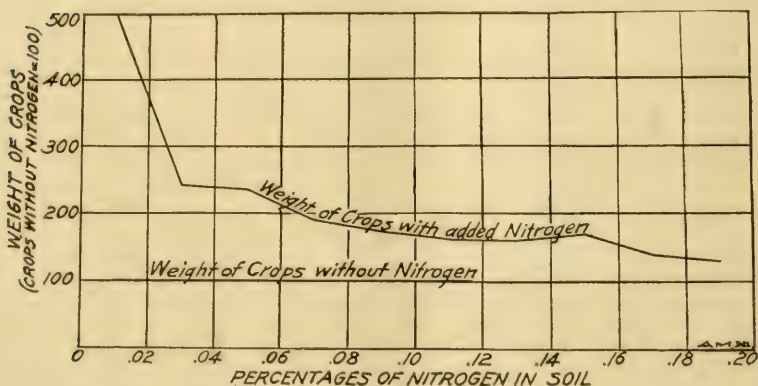 WEIGHT OF CROPS
(CROPS WITHOUT NITROGEN=100)
500
400
300
200
100
Weight of Crops with added Nitrogen
Weight of Crops without Nitrogen
0 .02 .04 .06 .08 .10 .12 .14 .16 .18 .20
PERCENTAGES OF NITROGEN IN SOIL